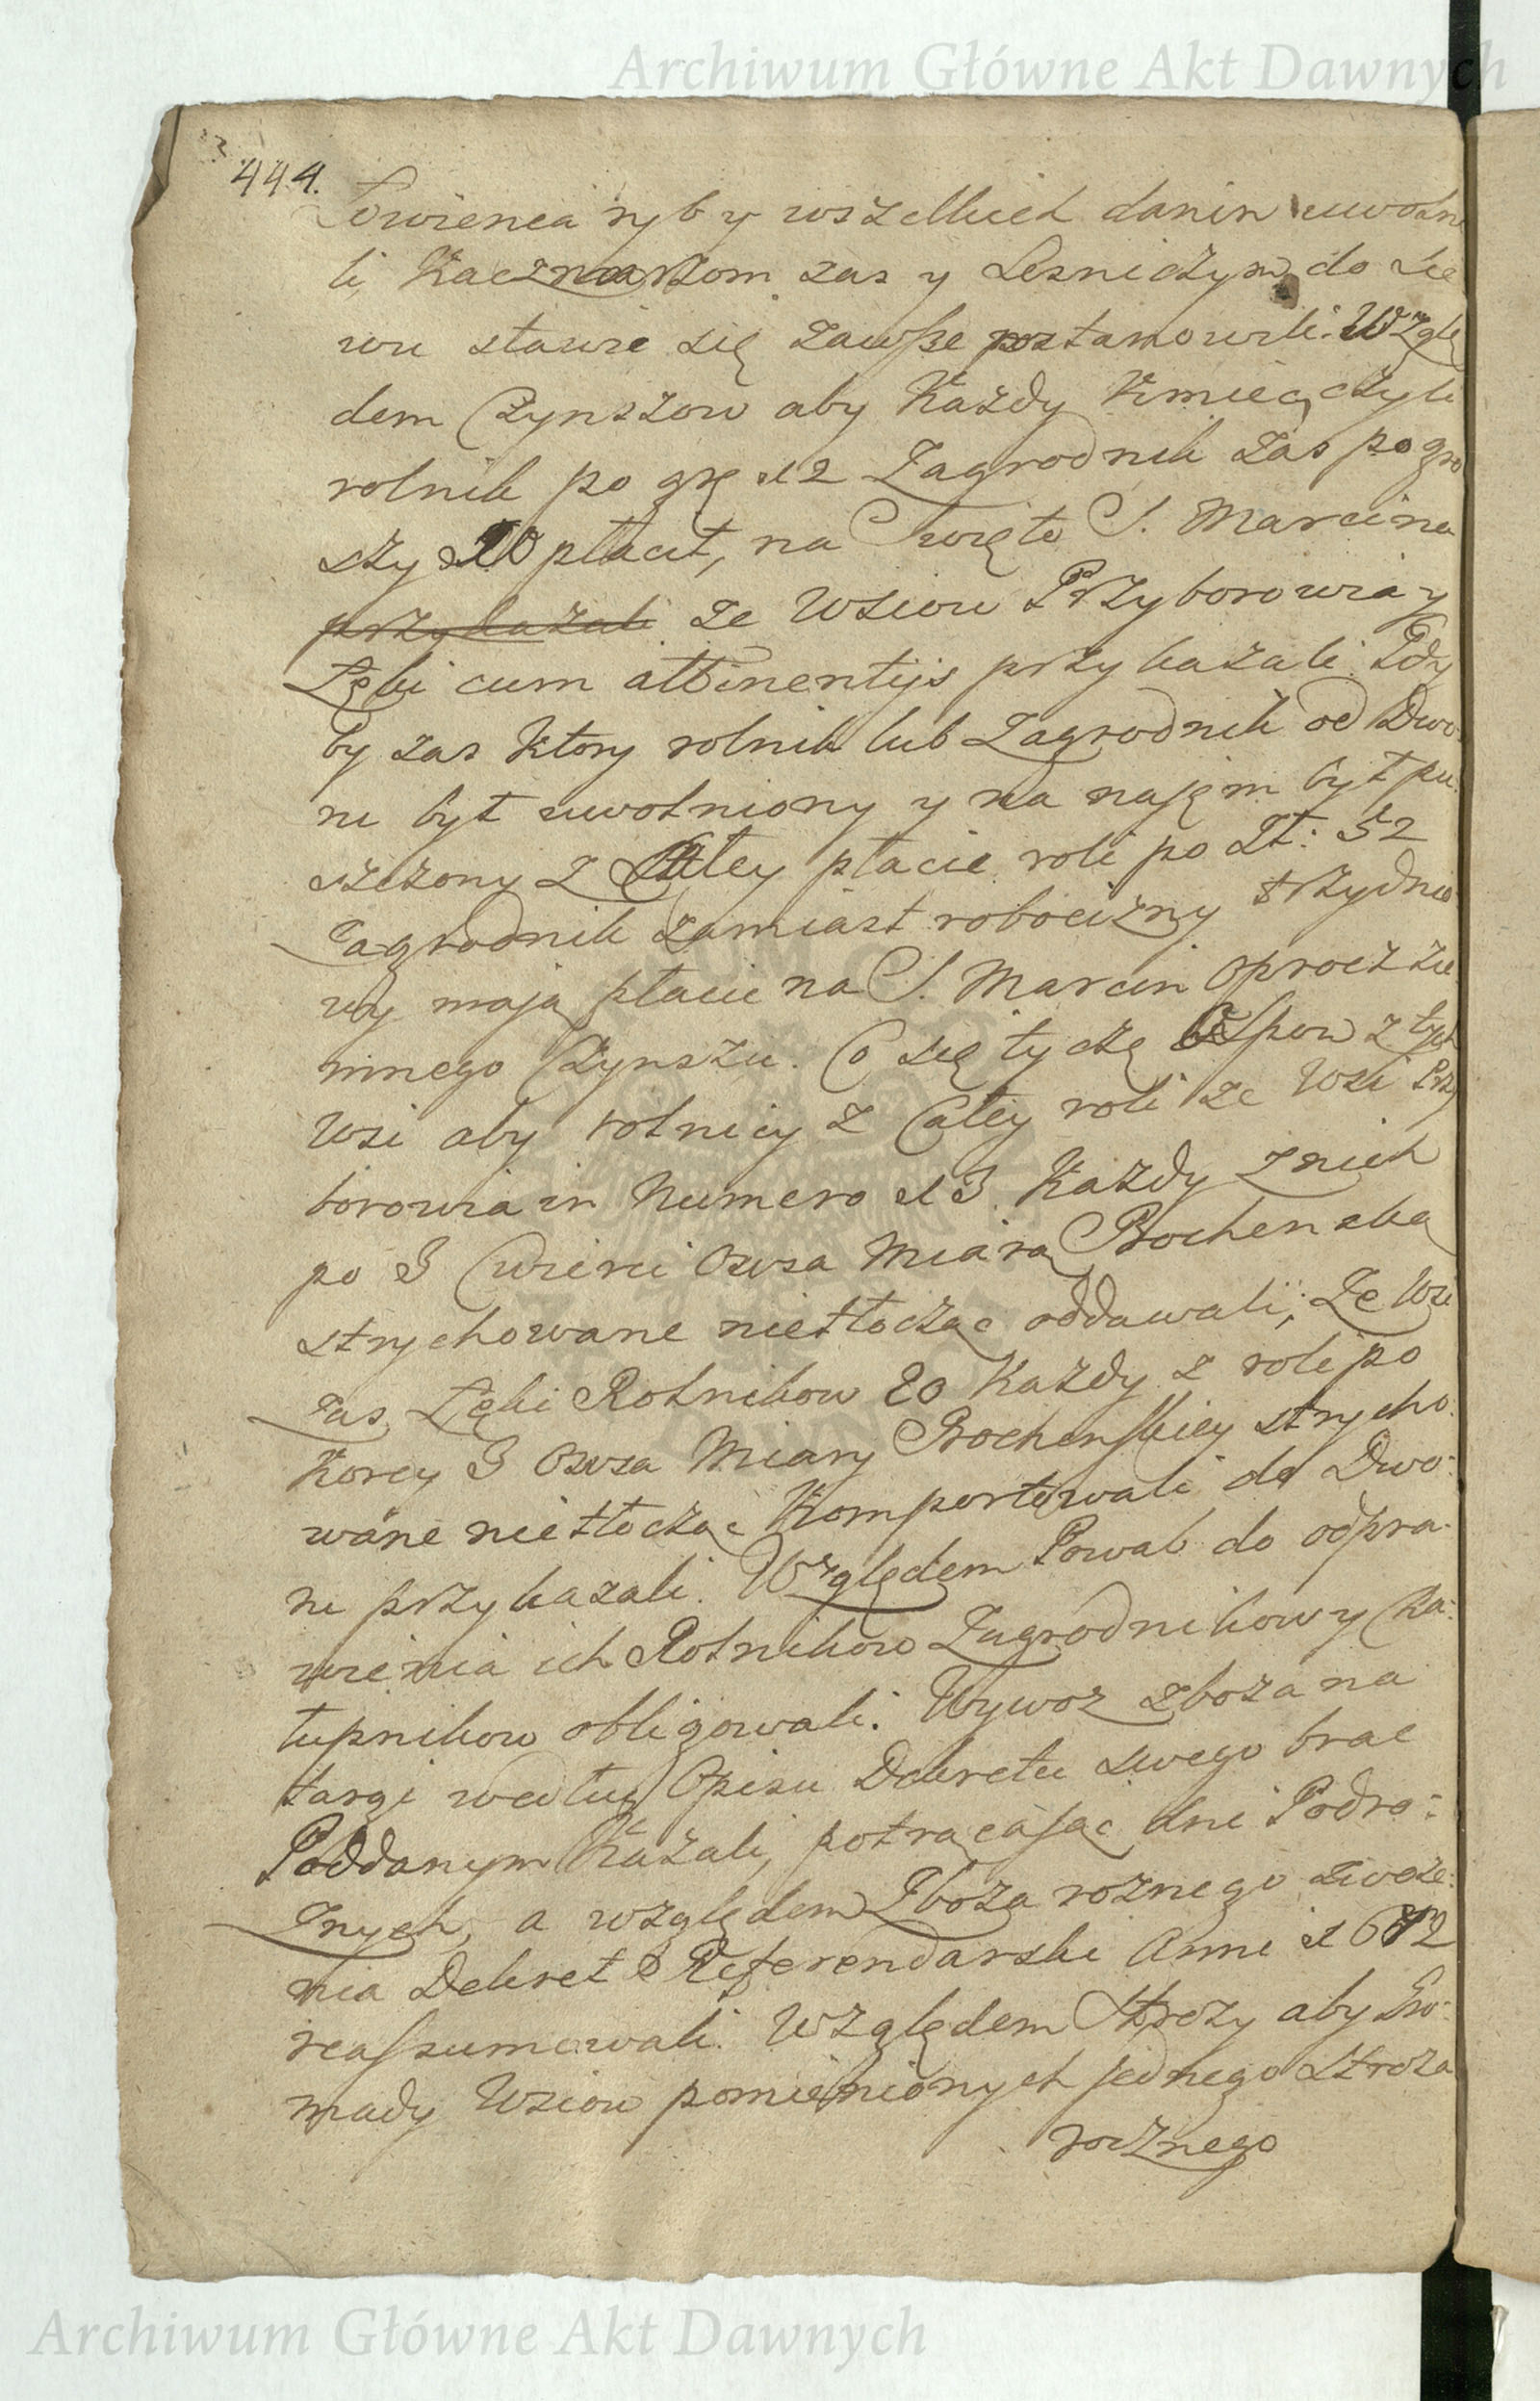 Archiwum Główne Akt Dawnych
444.
Łowienia ryb y wszelkich danin uwolni
li, Kaczmarzom zas y Lesniczym do Dw
wu stawic się zawsze postanowili. Wzglę
dem Czynszow aby Każdy Kmiec, czyli
rolnik po grz 12 Zagrodnik zas po gro
szy 20 płacił, na Swięto S. Marcina
przykazali ze Wsiow Przyborowia y
Łęki cum attinentijs przykazali. Gdy
by zas Ktory rolnik lub Zagrodnik od Dwo:
ru był uwolniony y na najęm był pu:
szczony z Całey płacic roli po Zł: 52
Zagrodnik zamiast robocizny trzydnio:
wy mają płacic na S. Marcin oprocz zie
mnego Czynszu. Co się tycze Osspow z tych
Wsi aby rolnicy z Całey roli ze Wsi Prz
borowia in Numero 13 Każdy z nich
po 3 Cwierci Owsa Miarą Bochenską
strychowane nietłocząc oddawali; Ze Wsi
zas Łęki Rolnikow 20 Każdy z roli po
Korcy 3 Owsa Miary Bochenskiey strycho:
wane nietłocząc Komportowali do Dwo:
ru przykazali. Względem Powab do odpra:
wienia ich Rolnikow Zagrodnikow y Cha:
łupnikow obligowali. Wywoz zboza na
targi według Opisu Dekretu swego brac
Poddanym Kazali, potrącając dni Podro:
znych, a względem Zboza roznego zwoze:
nia Dekret Referendarski Anni 1672
reassumowali. Względem Strozy aby Gro:
mady Wsiow pomienionych jednego Stroza
rocznego
Archiwum Główne Akt Dawnych